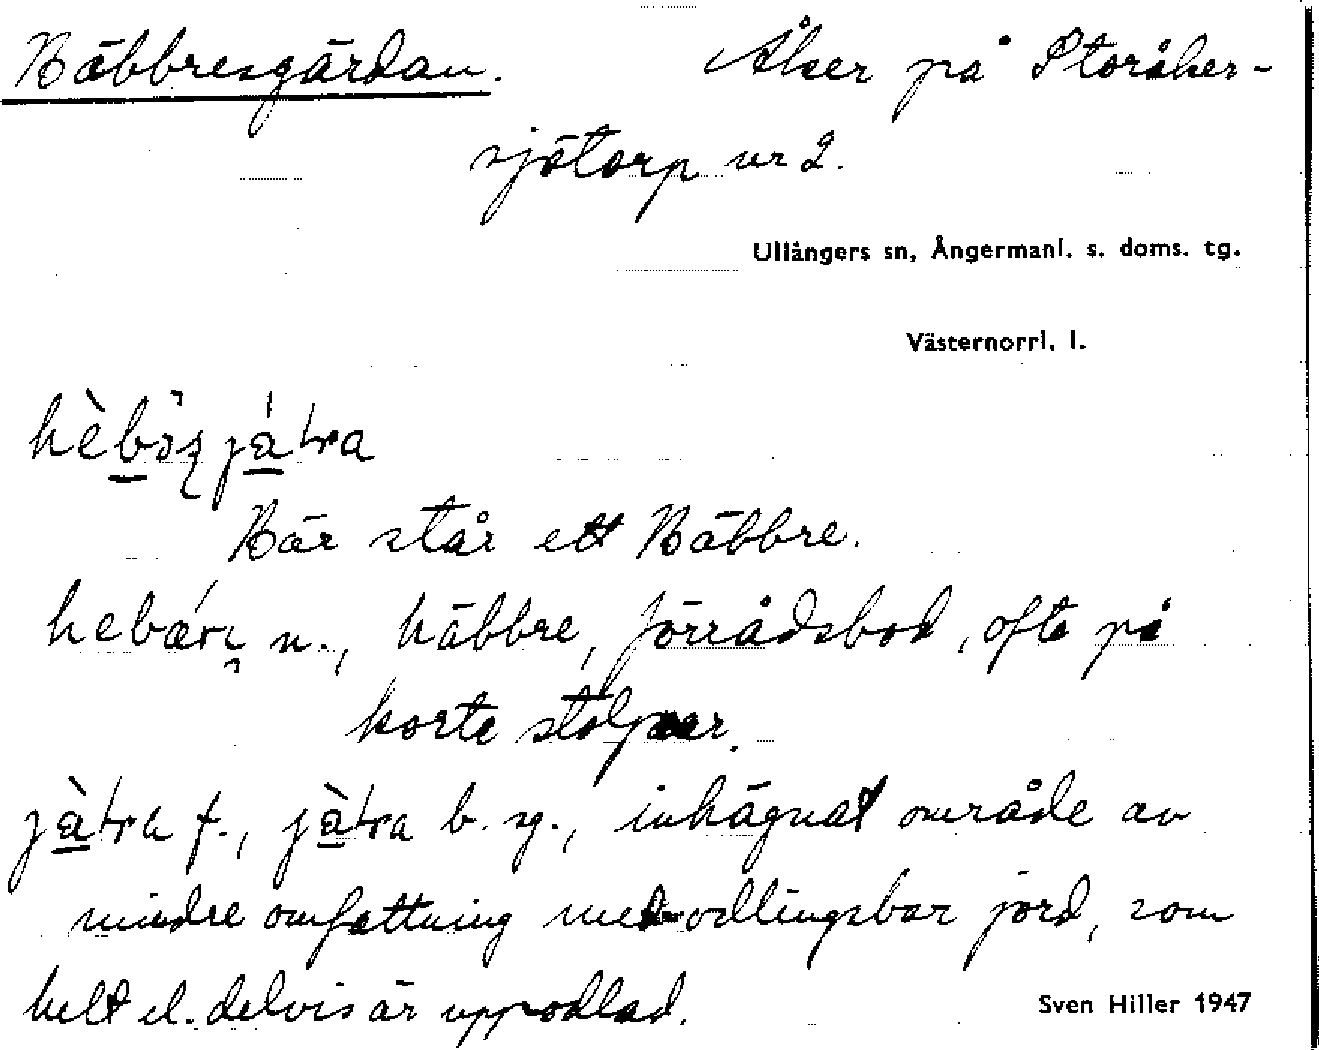 Häbbresgärdan. Åker på Storåker-
sjötorp nr 2.
Ullångers sn, Ångermanl. s. doms. tg.
Västernorrl. l.
Här står ett Häbbre.
n., häbbre, förrådsbod, ofta på
korta stolpar.
f., b. sg., inhägnat område av
mindre omfattning med odlingsbar jord, som
helt el. delvis är uppodlad.
Sven Hiller 1947